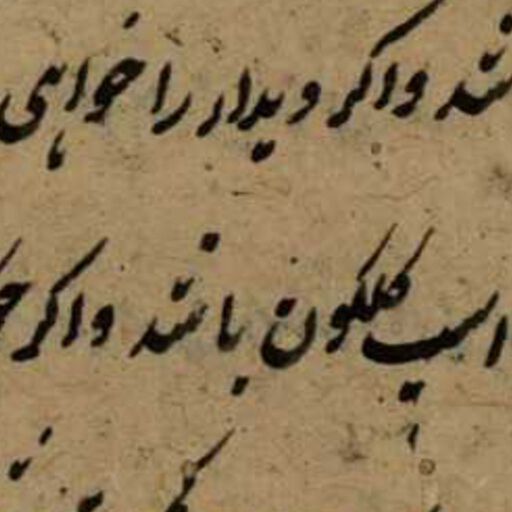 شد واکر دیدار را خواهی
اسب کلکون باشد واکر